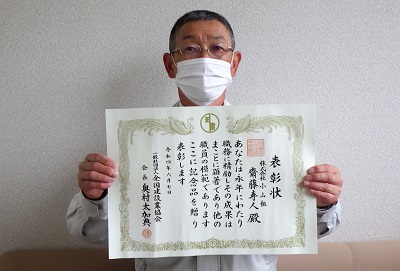 表彰状
株式会社小山組
齋藤寿人殿
あなたは永年にわたり
職務に精励しその成果は
まことに顕著であり他の
職員の模範であります
ここに記念品を贈り
表彰します
令和四年六月七日
一般社団法人全国建設業協会
会長 奥村太加典